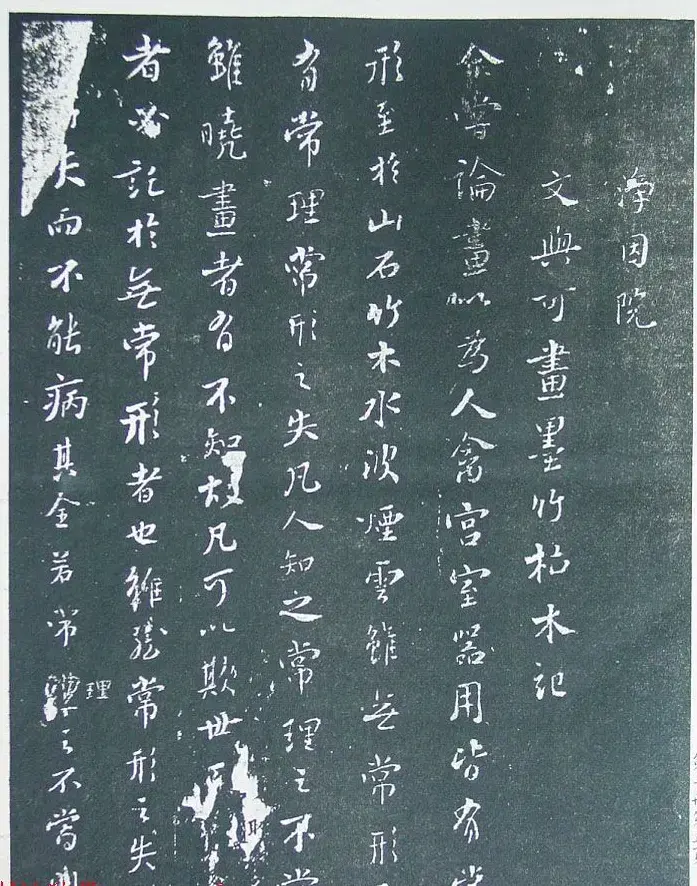 淨因院
文與可畫墨竹枯木記
余嘗論畫以為人禽宮室器用皆有常
形至於山石竹木水波煙雲雖無常形
有常理常形之失凡人知之常理之不當
雖曉畫者有不知故凡可以欺世
者必託於無常形者也雖然常形之失
失而不能病其全若常理之不當則